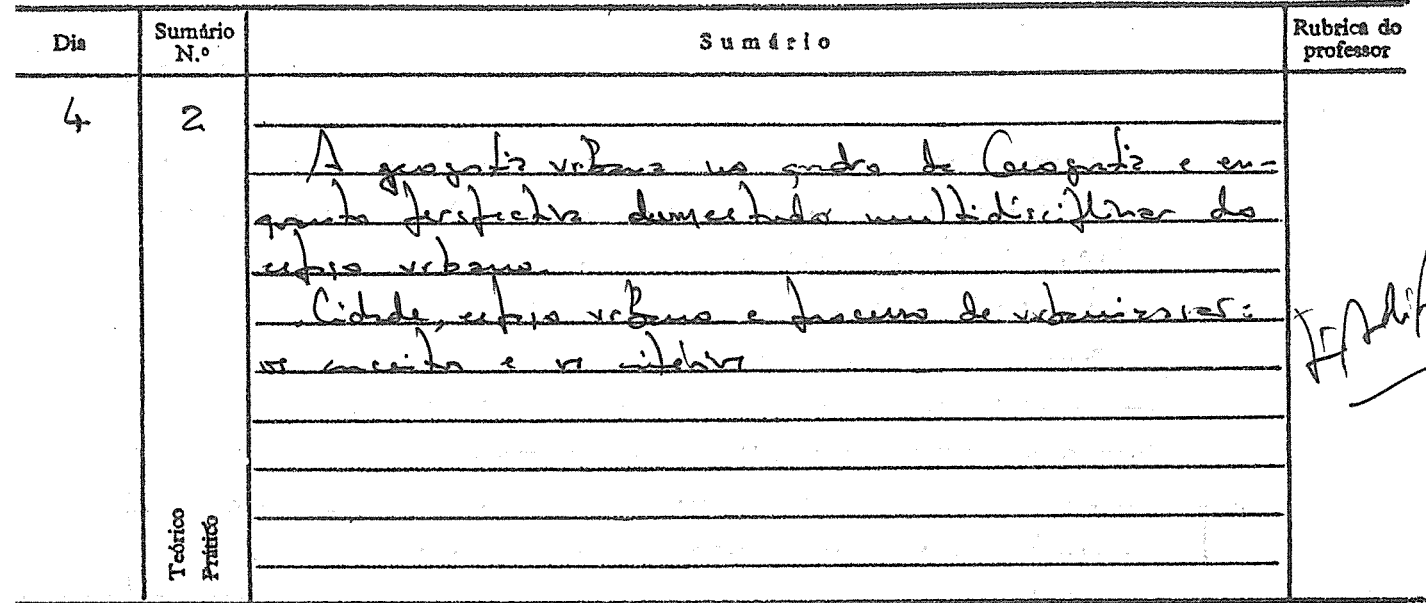 Dia Sumário N.º Sumário Rubrica do professor
4 2
A geografia urbana no quadro da Geografia e en-
quanto perspectiva dum estudo multidisciplinar do
espaço urbano.
Cidade, espaço urbano e processo de urbanização:
os conceitos e os critérios
Teórico
Prático